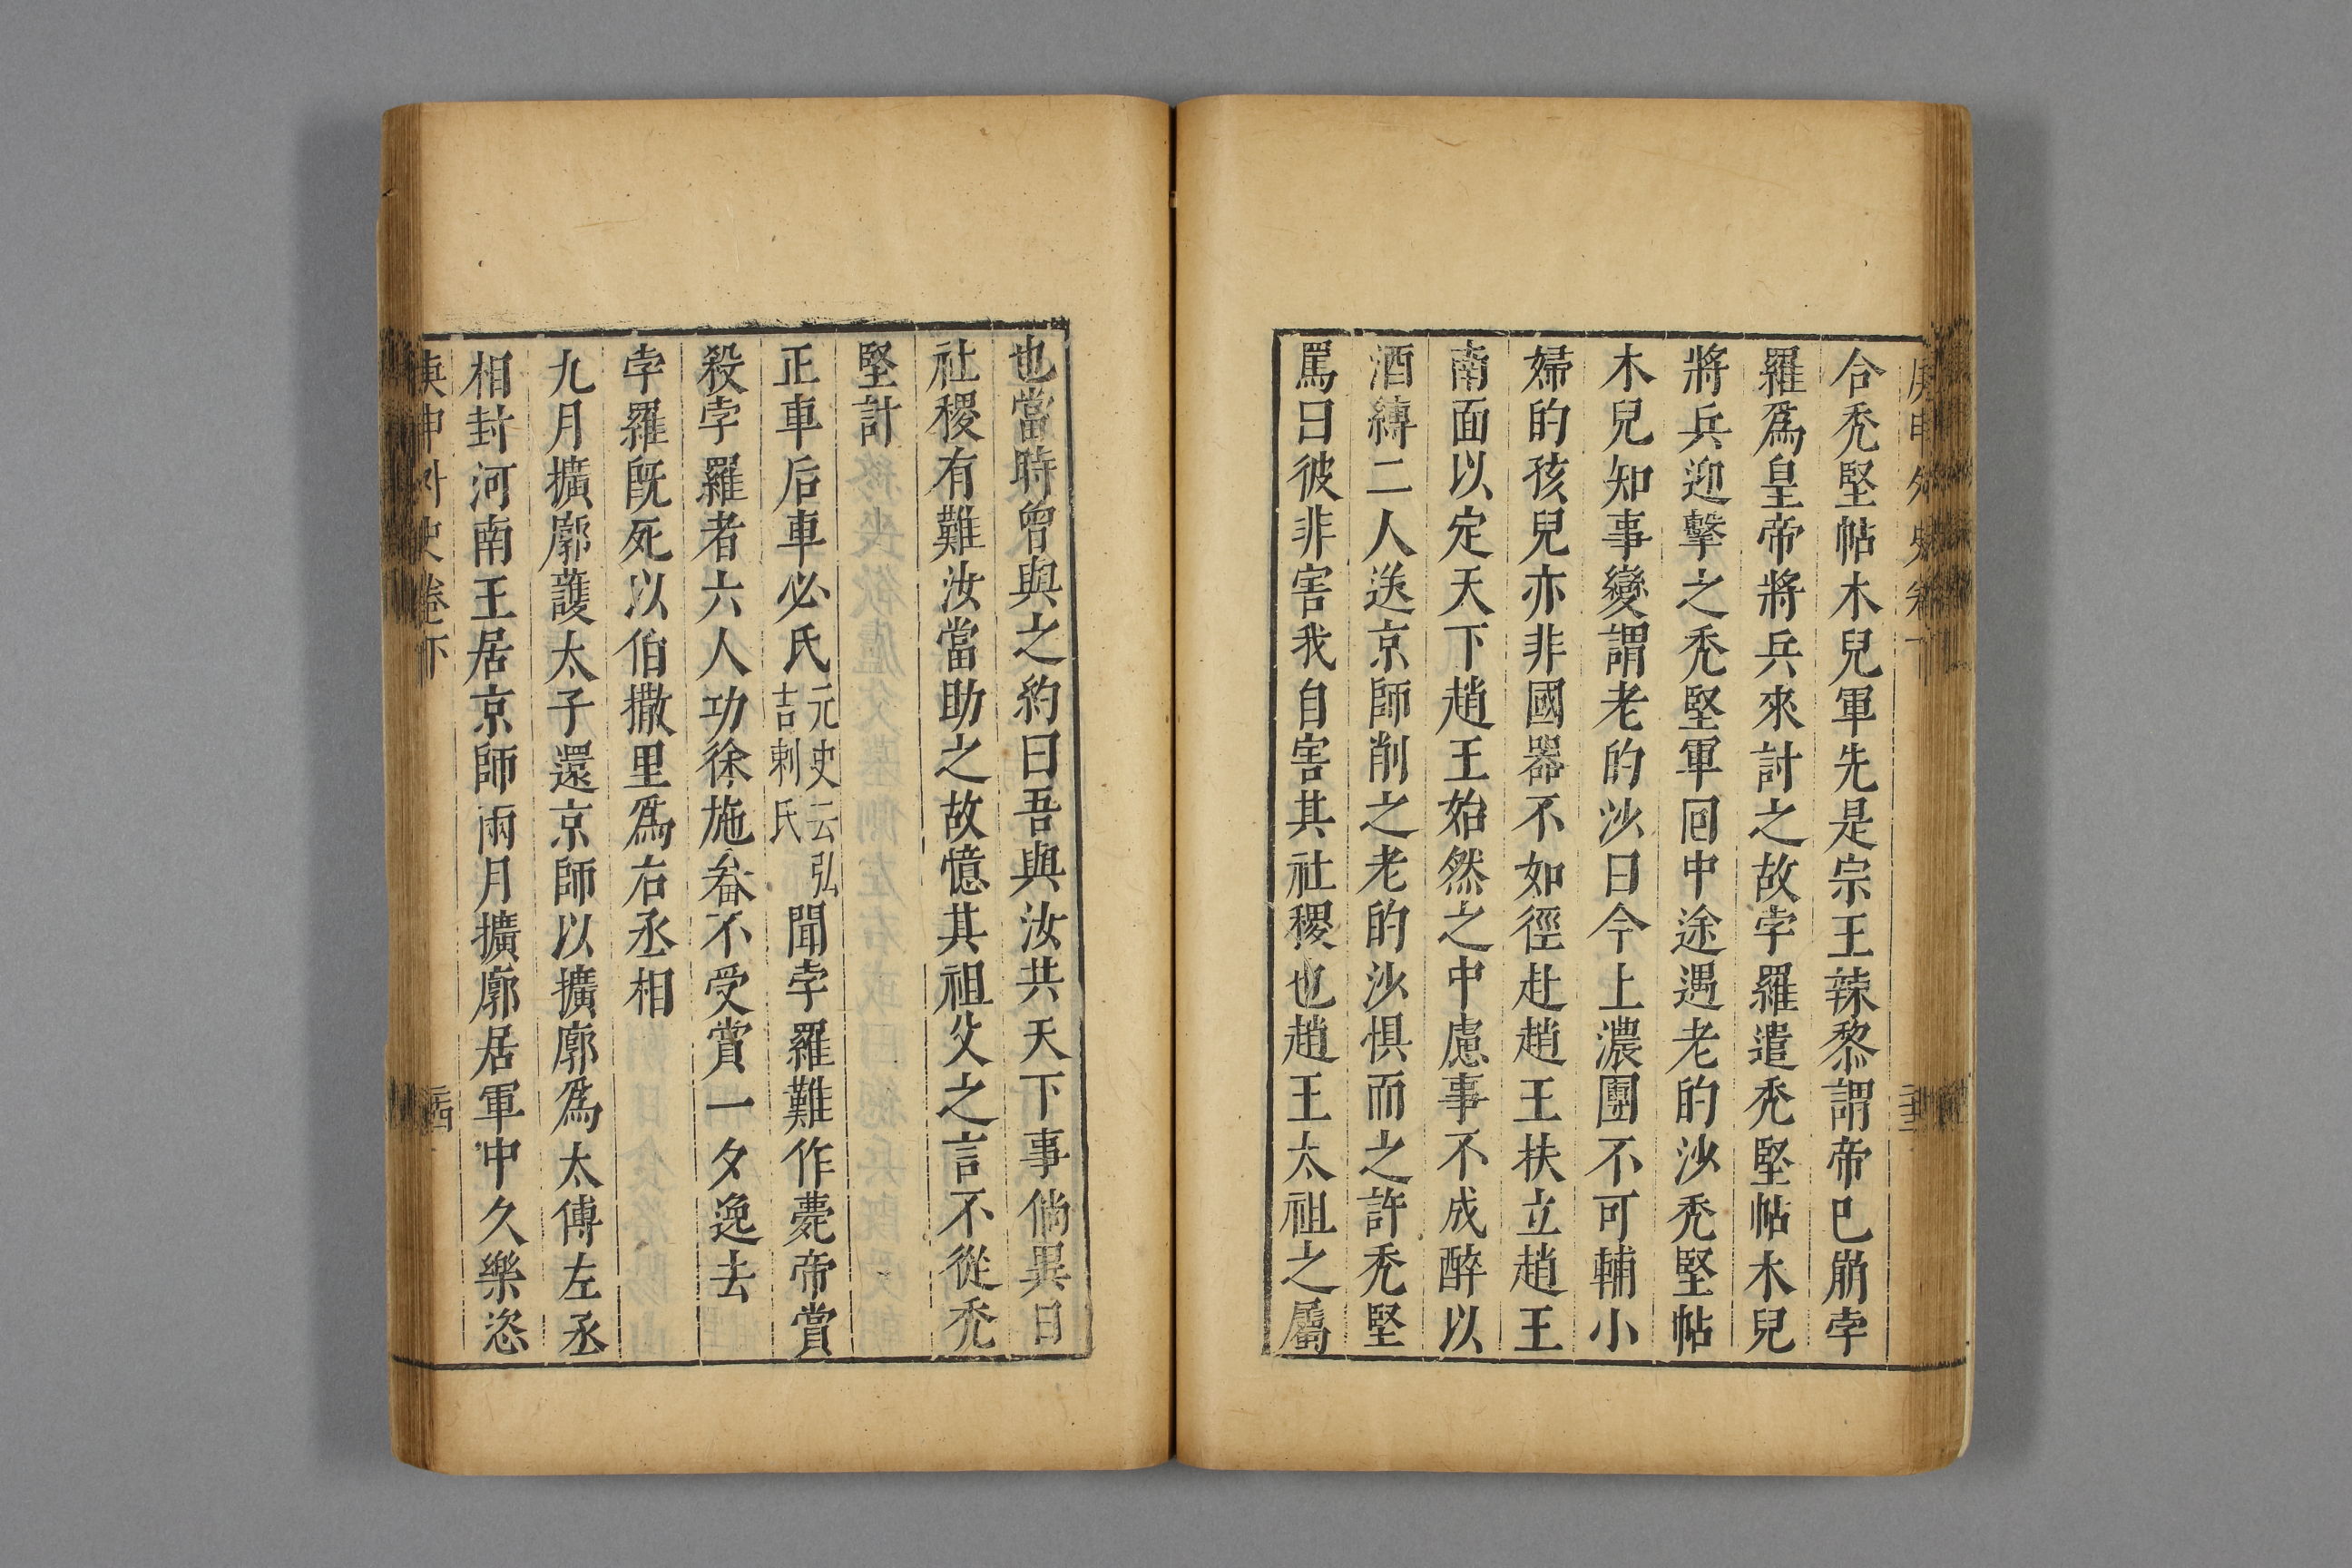 合禿堅帖木兒軍先是宗王辣黎謂帝巳崩孛
羅爲皇帝將兵來討之故孛羅遣禿堅帖木兒
將兵迎擊之禿堅軍囘中途遇老的沙禿堅帖
木兒知事變謂老的沙曰今上濃團不可輔小
婦的孩兒亦非國器不如徑赴趙王扶立趙王
南面以定天下趙王始然之中慮事不成醉以
酒縛二人送京師削之老的沙惧而之許禿堅
罵曰彼非害我自害其社稷也趙王太祖之屬
也當時曾與之約曰吾與汝共天下事倘異日
社稷有難汝當助之故憶其祖父之言不從禿
堅計
正車后車必氏元史云弘吉剌氏聞孛羅難作薨帝賞
殺孛羅者六人功徐施畚不受賞一夕逸去
孛羅既死以伯撒里爲右丞相
九月擴廓護太子還京師以擴廓爲太傅左丞
相封河南王居京師兩月擴廓居軍中久樂恣
庚申外史卷下